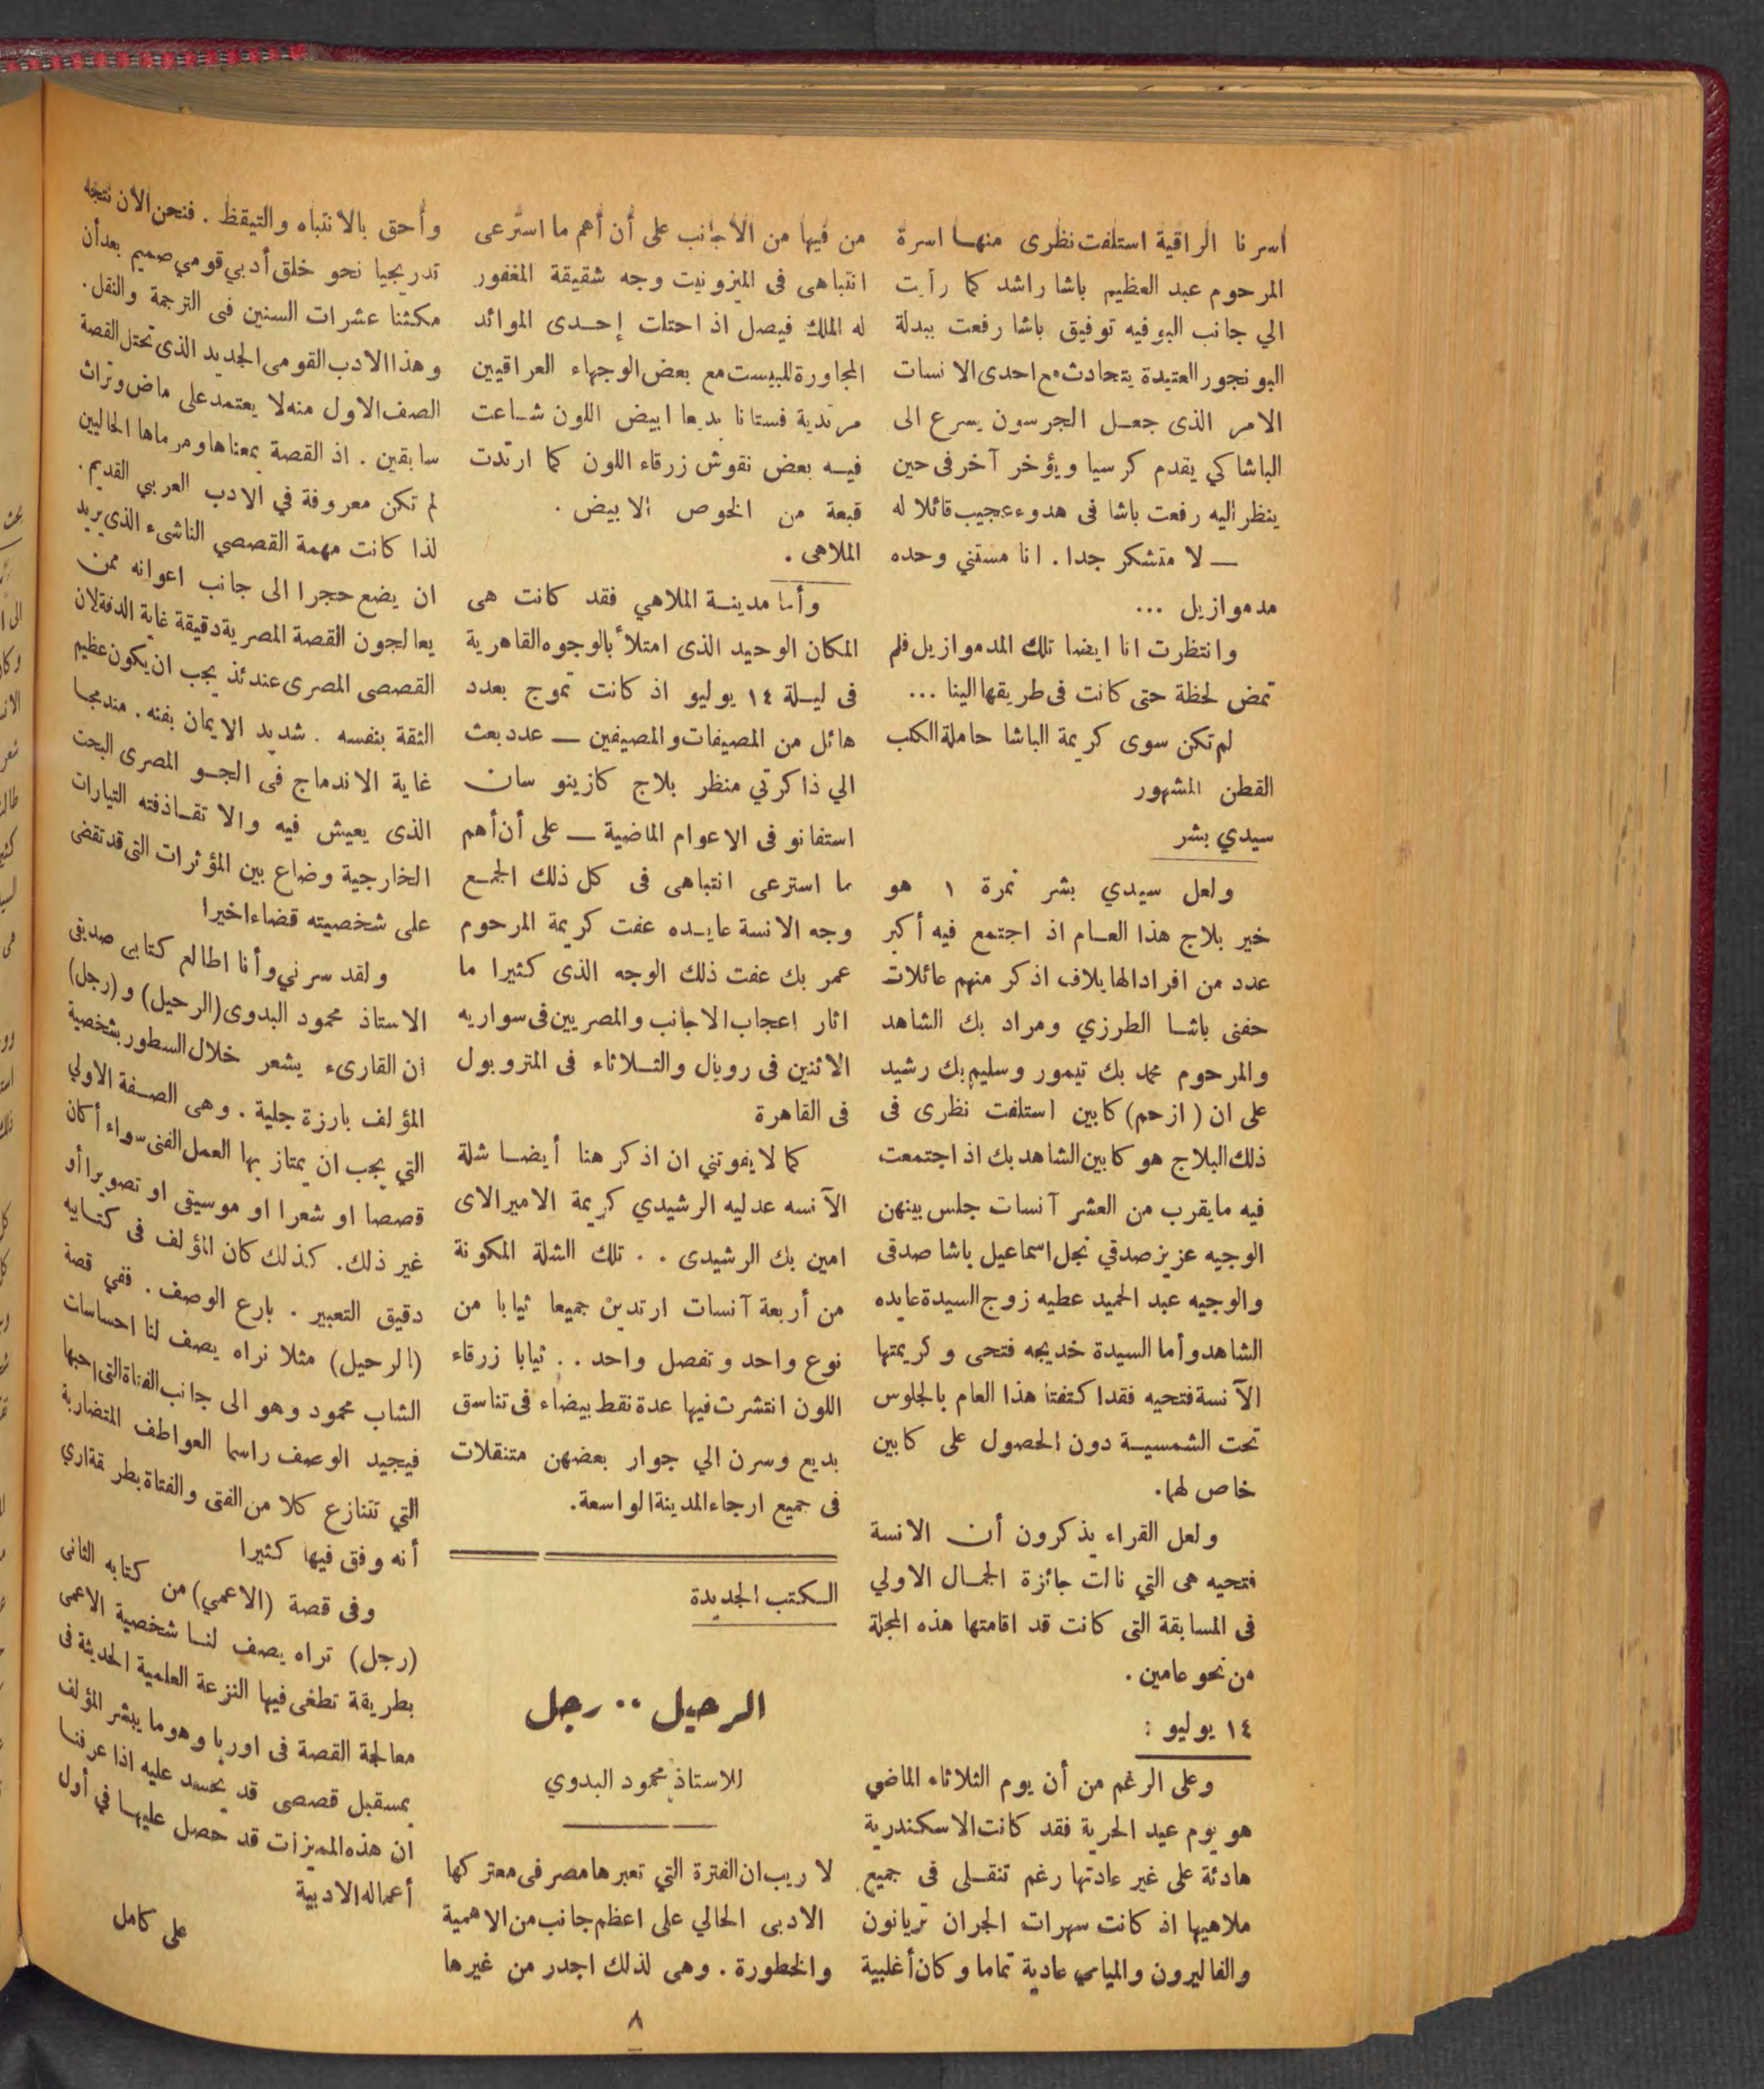 اسرنا الراقية استلفت نظرى منها اسرة
المرحوم عبد العظيم باشا راشد كما رأيت
الي جانب البوفيه توفيق باشا رفعت ببدلة
البونجور العتيدة يتحادث مع احدى الانسات
الامر الذى جعل الجرسون يسرع الى
الباشا كي يقدم كرسيا ويؤخر آخر فى حين
ينظر اليه رفعت باشا فى هدوء عجيب قائلا له
— لا متشكر جدا . انا مستني وحده
مدموازيل ...
وانتظرت انا ايضا تلك المدموازيل فلم
تمض لحظة حتى كانت فى طريقها الينا ...
لم تكن سوى كريمة الباشا حاملة الكلب
القطن المشهور
سيدي بشر
ولعل سيدي بشر نمرة ١ هو
خير بلاج هذا العام اذ اجتمع فيه أكبر
عدد من افراد الهايلاف اذكر منهم عائلات
حفنى باشا الطرزي ومراد بك الشاهد
والمرحوم محمد بك تيمور وسليم بك رشيد
على ان (ازحم) كابين استلفت نظرى فى
ذلك البلاج هو كابين الشاهد بك اذ اجتمعت
فيه ما يقرب من العشر آنسات جلس بينهن
الوجيه عزيز صدقي نجل اسماعيل باشا صدقى
والوجيه عبد الحميد عطيه زوج السيدة عايده
الشاهد وأما السيدة خديجه فتحى وكريمتها
الآنسة فتحيه فقد اكتفتا هذا العام بالجلوس
تحت الشمسية دون الحصول على كابين
خاص لهما.
ولعل القراء يذكرون أن الانسة
فتحيه هى التي نالت جائزة الجمال الاولي
فى المسابقة التى كانت قد اقامتها هذه المجلة
من نحو عامين .
١٤ يوليو :
وعلى الرغم من أن يوم الثلاثاء الماضي
هو يوم عيد الحرية فقد كانت الاسكندرية
هادئة على غير عادتها رغم تنقلى فى جميع
ملاهيها اذ كانت سهرات الجران تريانون
والفاليرون والميامى عادية تماما وكان أغلبية
من فيها من الاجانب على أن أهم ما استرعى
انتباهى فى الميزونيت وجه شقيقة المغفور
له الملك فيصل اذ احتلت إحدى الموائد
المجاورة للبيست مع بعض الوجهاء العراقيين
مرتدية فستانا بديعا ابيض اللون شاعت
فيه بعض نقوش زرقاء اللون كما ارتدت
قبعة من الخوص الابيض .
الملاهى .
وأما مدينة الملاهي فقد كانت هى
المكان الوحيد الذى امتلأ بالوجوه القاهرية
فى ليلة ١٤ يوليو اذ كانت تموج بعدد
هائل من المصيفات والمصيفين — عدد بعث
الي ذاكرتي منظر بلاج كازينو سان
استفانو فى الاعوام الماضية — على أن أهم
ما استرعى انتباهى فى كل ذلك الجمع
وجه الانسة عايده عفت كريمة المرحوم
عمر بك عفت ذلك الوجه الذى كثيرا ما
اثار اعجاب الاجانب والمصريين فى سواريه
الاثنين فى رويال والثلاثاء فى المتروبول
فى القاهرة
كما لا يفوتني ان اذكر هنا أيضا شلة
الآنسه عدليه الرشيدي كريمة الاميرالاى
امين بك الرشيدى . . تلك الشلة المكونة
من أربعة آنسات ارتدين جميعا ثيابا من
نوع واحد وتفصل واحد . . ثيابا زرقاء
اللون انتشرت فيها عدة نقط بيضاء فى تناسق
بديع وسرن الي جوار بعضهن متنقلات
فى جميع ارجاء المدينة الواسعة.
الكتب الجديدة
الرحيل .. رجل
للاستاذ محمود البدوي
لا ريب ان الفترة التي تعبرها مصر فى معتركها
الادبى الحالي على اعظم جانب من الاهمية
والخطورة . وهى لذلك اجدر من غيرها
وأحق بالانتباه والتيقظ . فنحن الان نتجه
تدريجيا نحو خلق أدبي قومي صميم بعد أن
مكثنا عشرات السنين فى الترجمة والنقل.
وهذا الادب القومى الجديد الذى تحتل القصة
الصف الاول منه لا يعتمد على ماض وتراث
سابقين . اذ القصة بمعناها ومرماها الحاليين
لم تكن معروفة في الادب العربي القديم.
لذا كانت مهمة القصصي الناشىء الذى يريد
ان يضع حجرا الى جانب اعوانه ممن
يعالجون القصة المصرية دقيقة غاية الدقة لان
القصصى المصرى عندئذ يجب ان يكون عظيم
الثقة بنفسه . شديد الايمان بفنه . مندمجا
غاية الاندماج فى الجو المصرى البحت
الذى يعيش فيه والا تقاذفته التيارات
الخارجية وضاع بين المؤثرات التى قد تقضى
على شخصيته قضاء اخيرا
ولقد سرني وأنا اطالع كتابى صديقى
الاستاذ محمود البدوى (الرحيل) و (رجل)
ان القارىء يشعر خلال السطور بشخصية
المؤلف بارزة جلية . وهى الصفة الاولي
التي يجب ان يمتاز بها العمل الفنى سواء أكان
قصصا او شعرا او موسيقى او تصويرا أو
غير ذلك. كذلك كان المؤلف فى كتابيه
دقيق التعبير . بارع الوصف . ففي قصة
(الرحيل) مثلا نراه يصف لنا احساسات
الشاب محمود وهو الى جانب الفتاة التى احبها
فيجيد الوصف راسما العواطف المتضاربة
التي تتنازع كلا من الفتى والفتاة بطريقة اري
أنه وفق فيها كثيرا
وفى قصة (الاعمي) من كتابه الثانى
(رجل) تراه يصف لنا شخصية الاعمى
بطريقة تطغى فيها النزعة العلمية الحديثة فى
معالجة القصة فى اوربا وهو ما يبشر المؤلف
بمستقبل قصصى قد يحسد عليه اذا عرفنا
ان هذه المميزات قد حصل عليها في أول
أعماله الادبية
على كامل
٨